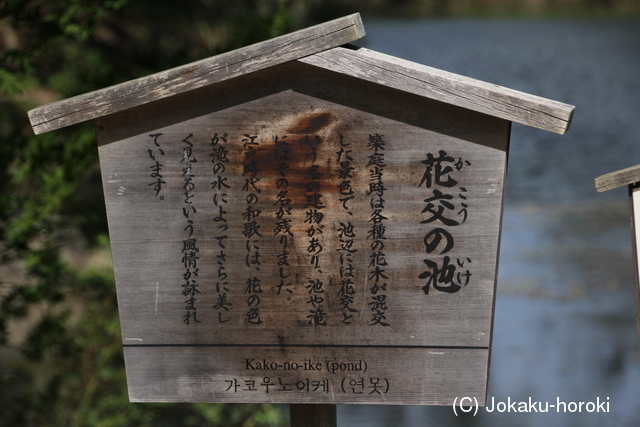 花交の池
かこう いけ
築庭当時は各種の花木が混交
した景色で、池辺には花交と
いう名の建物があり、池や滝
にはその名が残りました。
江戸時代の和歌には、花の色
が滝の水によってさらに美し
く見えるという風情が詠まれ
ています。
Kako-no-ike (pond)
가코우노이케 (연못)
(C) Jokaku-horoki